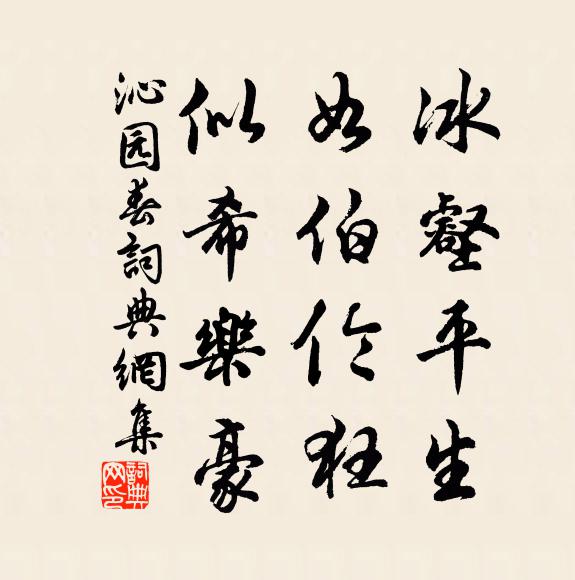 冰壑平生
如伯伦狂
似希樂豪
沁园春詞典網集
詞典网印